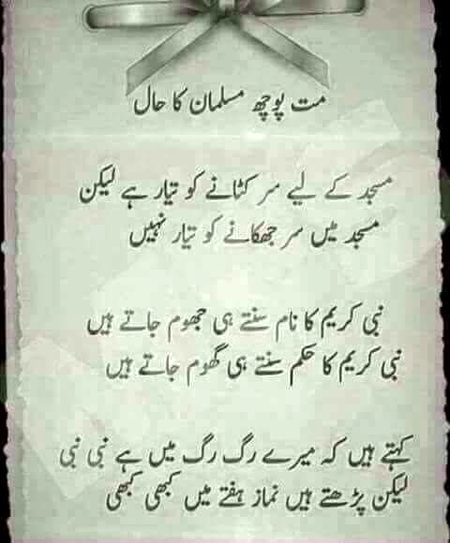 مت پوچھ مسلمان کا حال
مسجد کے لیے سر کٹانے کو تیار ہے لیکن
مسجد میں سر جھکانے کو تیار نہیں
نبی کریم کا نام سنتے ہی جھوم جاتے ہیں
نبی کریم کا حکم سنتے ہی گھوم جاتے ہیں
کہتے ہیں کہ میرے رگ رگ میں ہے نبی نبی
لیکن پڑھتے ہیں نماز ہفتے میں کبھی کبھی